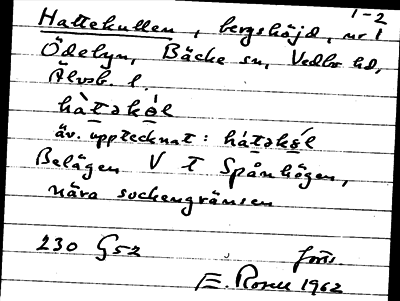 1-2
Hattekullen, bergshöjd, nr 1
Ödebyn, Bäcke sn, Vedbo hd,
Älvsb. l.
hàtəko̱l
äv. upptecknat: hátəko̱l
Belägen V t Spånhögen,
nära sockengränsen
230 G52 förs.
E. 1962